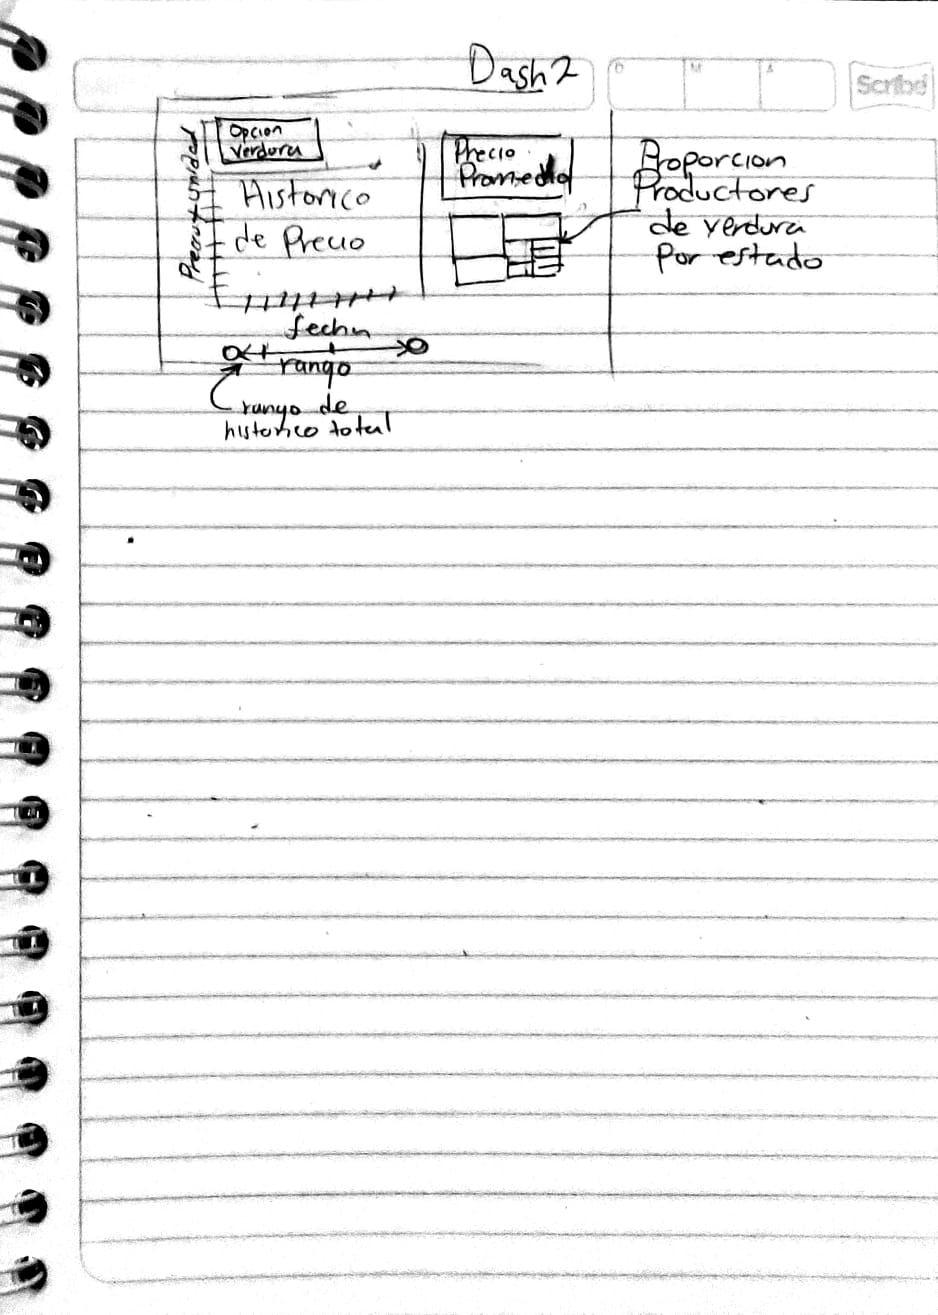 Dash 2
D
M
A
Scribe
Opcion
Verdura
Historico
de Precio
fecha
rango
rango de
historico total
Precio
Promedio
Proporcion
Productores
de verdura
Por estado